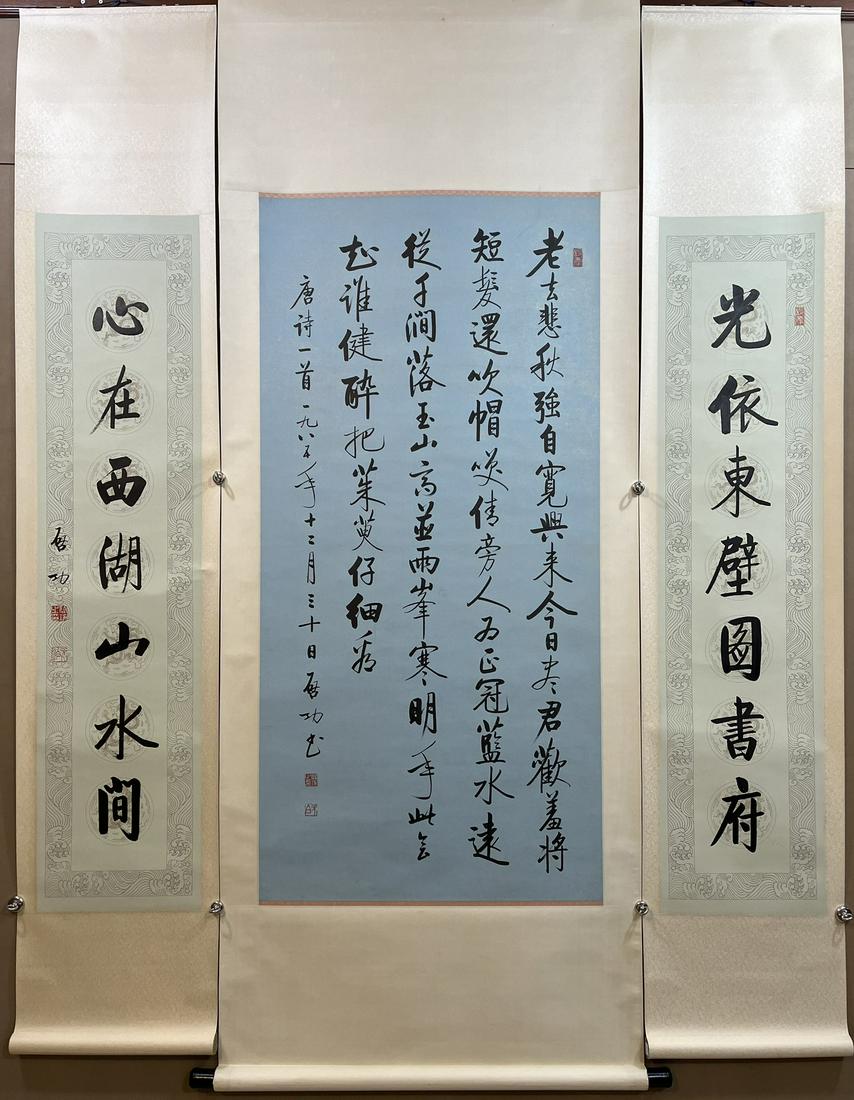 光依東壁圖書府
老去悲秋強自寬興来今日尽君歡羞將
短髮還吹帽咲倩旁人为正冠藍水遠
從千澗落玉山高並兩峯寒明年此會
知誰健醉把茱萸仔細看
唐詩一首一九八五年十二月三十日啟功书
心在西湖山水間
啟功